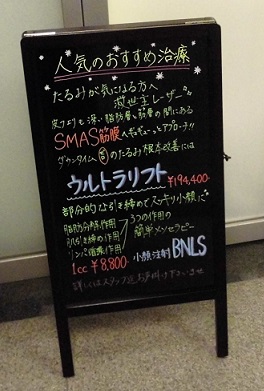 人気のおすすめ治療
たるみが気になる方へ
救世主レーザー
皮フよりも深い脂肪層と筋層の間にある
SMAS筋膜へギューッとアプローチ!!
ダウンタイム のたるみ根本改善には
ウルトラリフト ¥194,400-
部分的な引き締めでスッキリ小顔に
脂肪分解作用
肌引き締め作用
リンパ循環作用
3つの作用の
簡単メソセラピー
1cc ¥8,800- 小顔注射 BNLS
詳しくはスタッフ迄お声掛け下さいませ